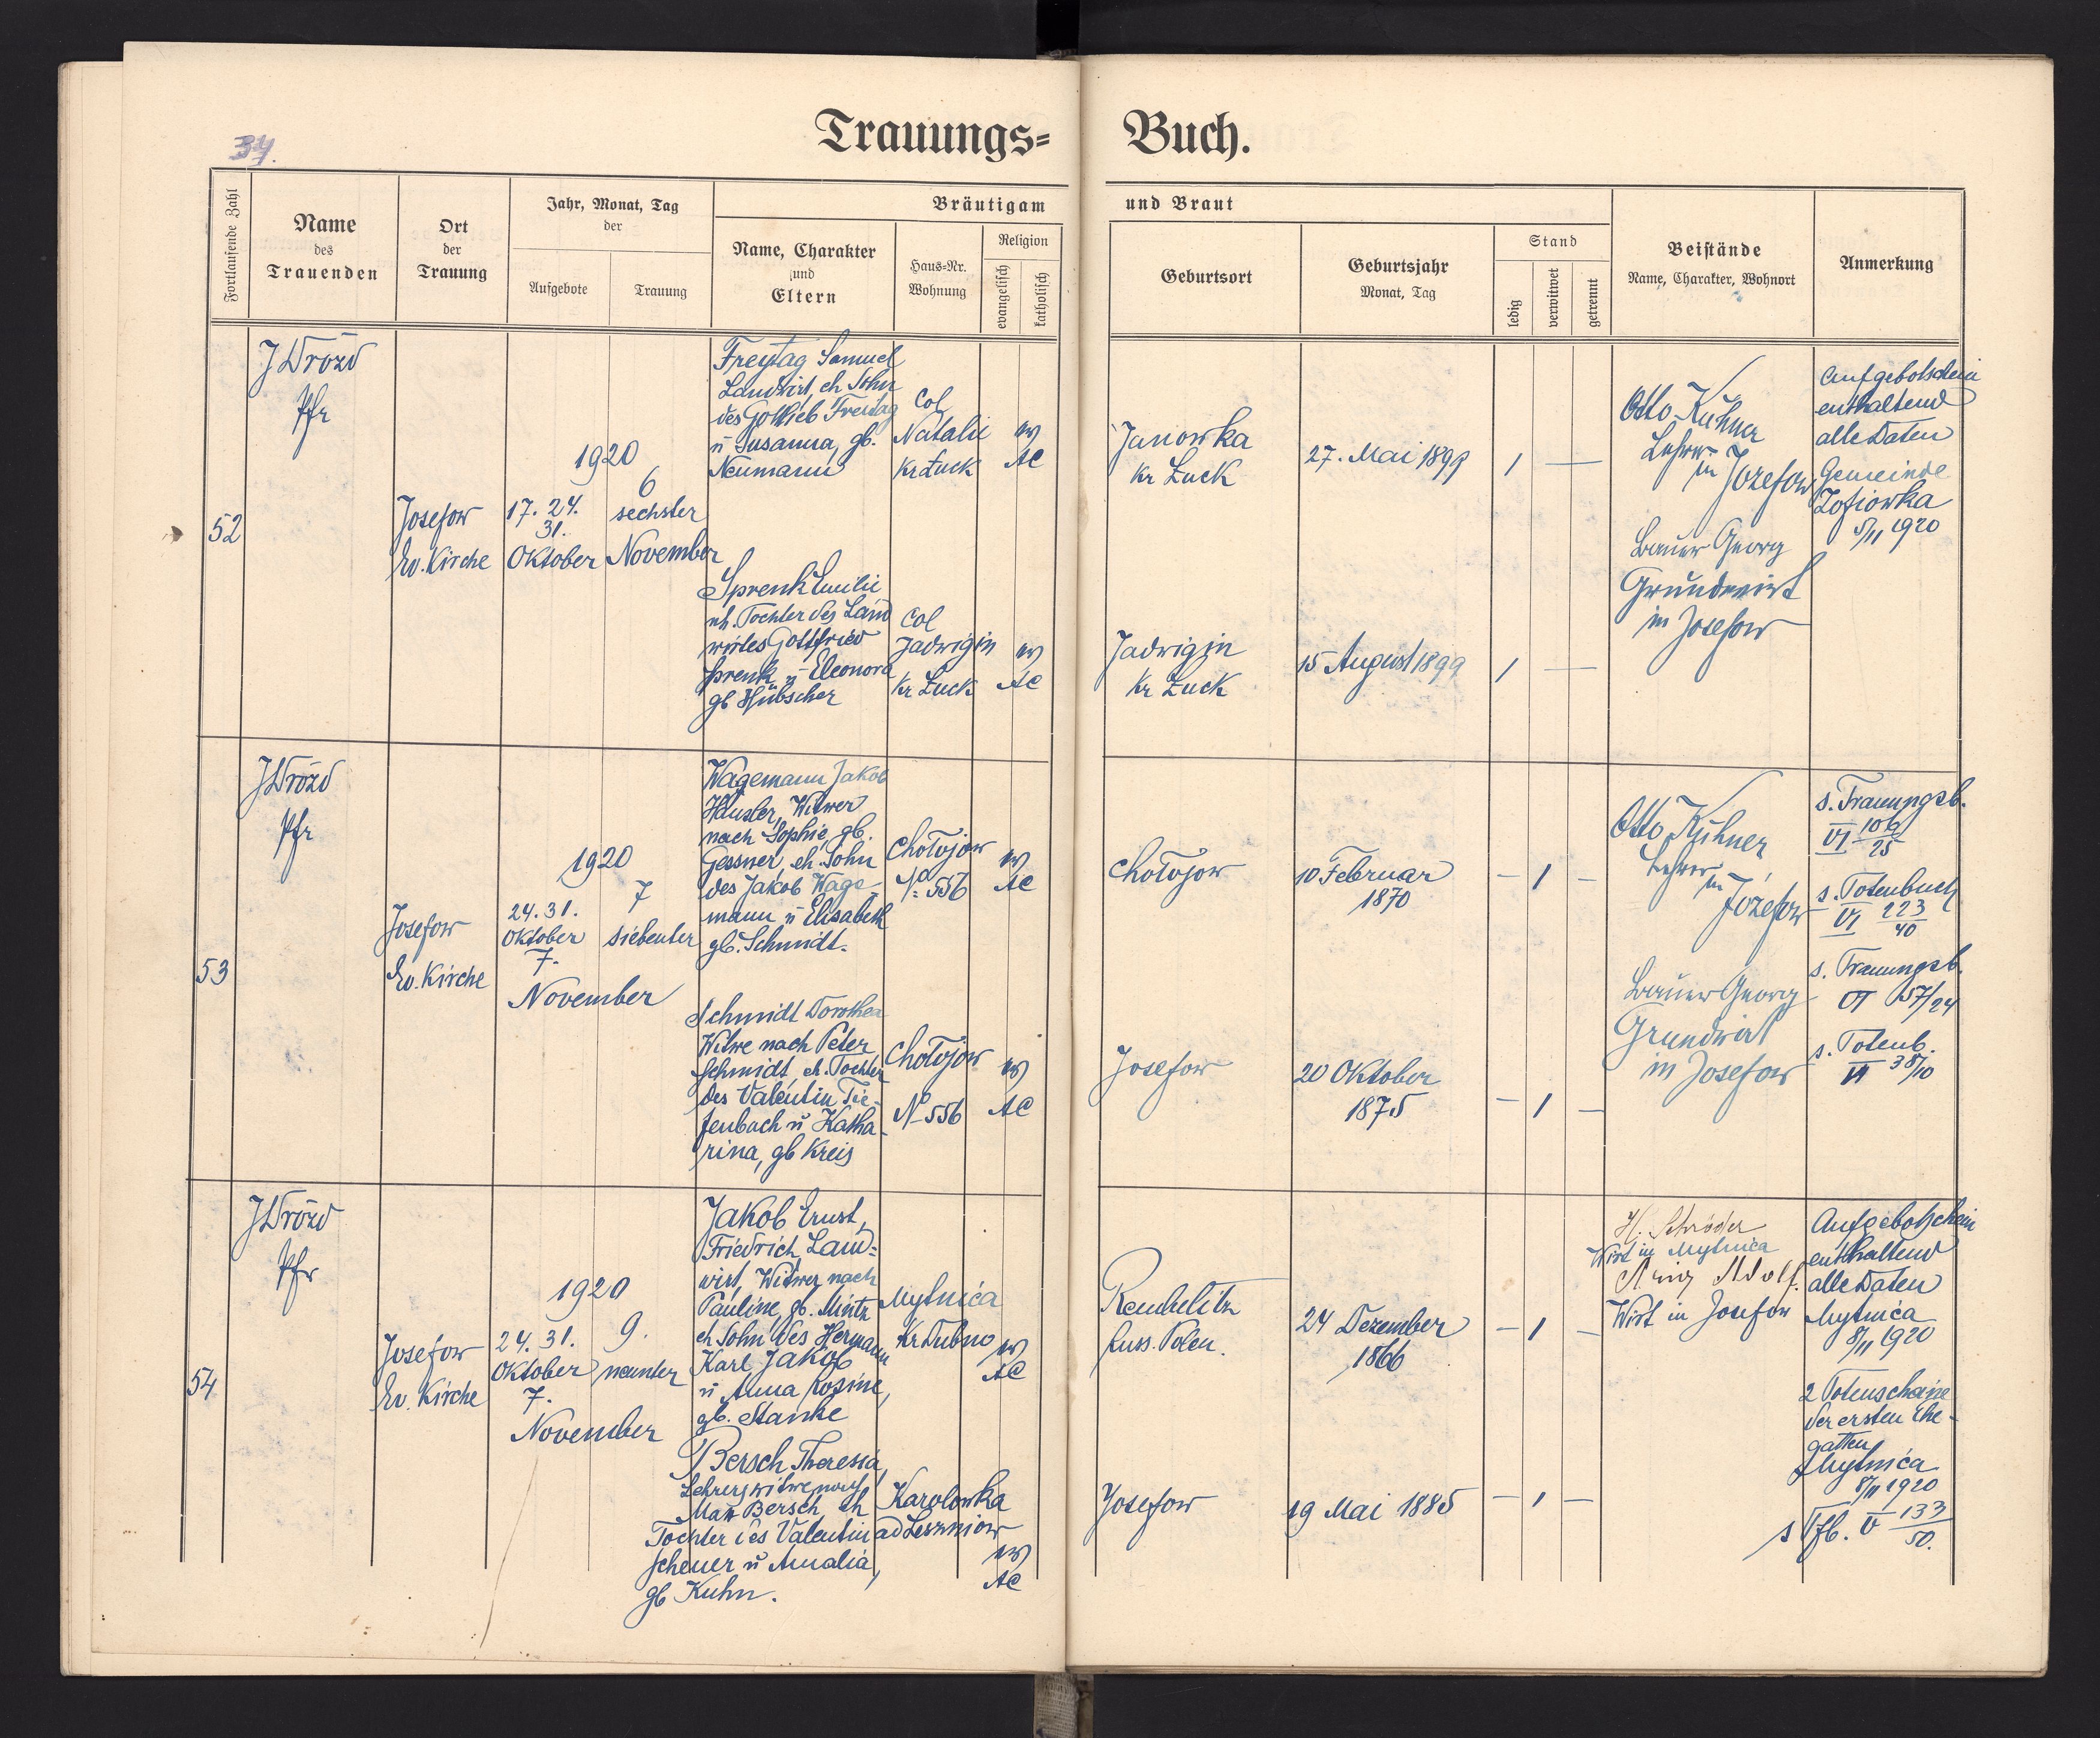 34.
Trauungs=
Buch.
Fortlaufende Zahl
Name
des
Trauenden
Ort
der
Trauung
Jahr, Monat, Tag
der
Aufgebote
Trauung
Bräutigam
Name, Charakter
und
Eltern
Haus=Nr.
Wohnung
Religion
evangelisch
katholisch
und Braut
Geburtsort
Geburtsjahr
Monat, Tag
Stand
ledig
verwitwet
getrennt
Beistände
Name, Charakter, Wohnort
Anmerkung
52
J Drozd
Pfr
Josefow
Ev. Kirche
1920
17. 24.
31.
Oktober
6
sechster
November
Freytag Samuel
Landwirt, eh Sohn
des Gottlieb Freitag
u Susanna, gb.
Neumann
Col
Natalii
Kr Łuck
ev
AC
Janowka
Kr Łuck
27. Mai 1899
/ —
Sprenk Emilie
eh. Tochter des Land
wirtes Gottfried
Sprenk u Eleonora
gb Hübscher
Col
Jadwigin
Kr Łuck
ev
AC
Jadwigin
Kr Łuck
15 August 1899
/ —
Otto Kühner
Lehrer
in Józefow
Bauer Georg
Grundwirt
in Josefow
Aufgebotschein
enthaltend
alle Daten
Gemeinde
Zofiowka
5/11 1920
53
J Drozd
Pfr
Josefow
Ev. Kirche
1920
24. 31.
Oktober
7.
November
7
siebenter
Wagemann Jakob
Häusler, Witwer
nach Sophie, gb.
Gessner, eh. Sohn
des Jakob Wage-
mann u Elisabeth
gb. Schmidt.
Chołojow
No 556
ev
AC
Chołojow
10 Februar
1870
— / —
Schmidt Dorothea
Witwe nach Peter
Schmidt, eh. Tochter
des Valentin Tie-
fenbach u Katha-
rina, gb Kreis
Chołojow
No 556
ev
AC
Josefow
20 Oktober
1875
— / —
Otto Kühner
Lehrer
in Józefow
Bauer Georg
Grundwirt
in Josefow
s. Trauungsb.
VI 106/25
s. Totenbuch
VI 223/40
s. Trauungsb.
VI 57/24
s. Totenb.
VI 38/10
54
J Drozd
Pfr
Josefow
Ev. Kirche
1920
24. 31.
Oktober
7.
November
9.
neunter
Jakob Ernst,
Friedrich, Land=
wirt, Witwer nach
Pauline, gb. Mintz
eh Sohn des Hermann
Karl Jakob
u Anna Rosine,
gb. Stanke
Mytnica
Kr Dubno
ev
AC
Rembelitz
Russ. Polen.
24 Dezember
1866
— / —
Bersch Theresia
Lehrerswitwe nach
Max Bersch, eh
Tochter des Valentin
Scheuer u Amalia,
gb Kuhn.
Karolowka
ad Leszniow
ev
AC
Josefow
19 Mai 1885
— / —
H. Schröder
Wirt in Mytnica
Adolf.
Wirt in Josefow
Aufgebotschein
enthaltend
alle Daten
Mytnica
8/11 1920
2 Totenscheine
der ersten Ehe-
gatten
Mytnica
8/11 1920
s Tfb. V 133/50.